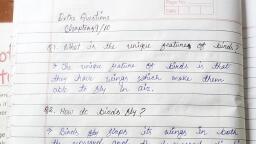 Extra Questions
Chapter-9/10
Q1. What is the unique feature of birds?
→ The unique feature of birds is that
they have wings which make them
able to fly in air.
Q2. How do birds fly?
→ Birds fly flaps its wings in both
the upward and the downward